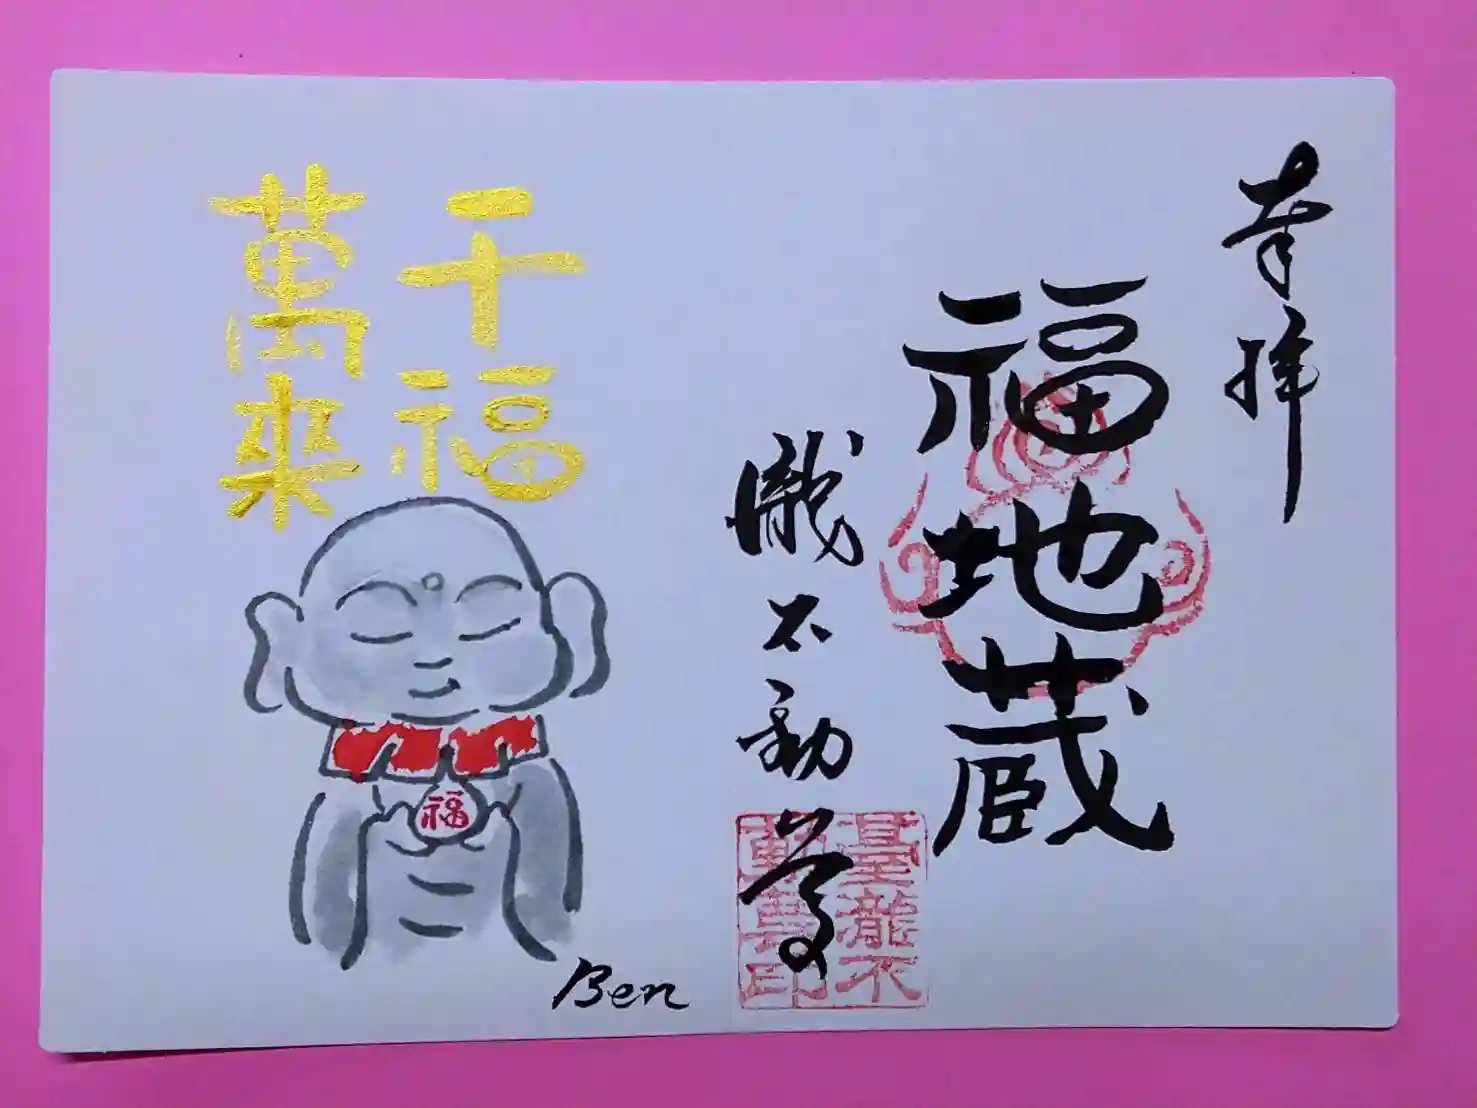 奉拝
福地蔵
瀧不動尊
龍不
動尊印
千福
萬來
福
Ben